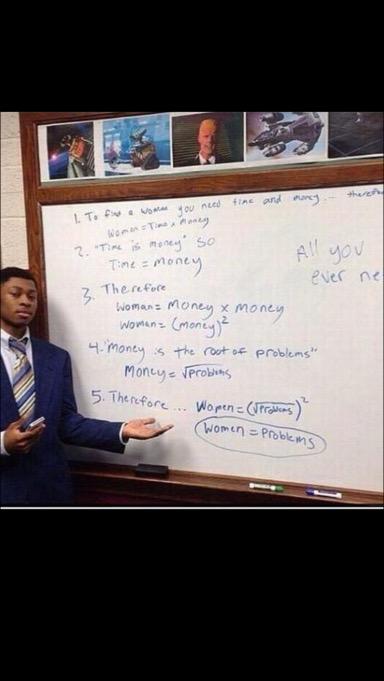 1. To find a woman you need time and money... therefore
Woman = Time x Money
2. "Time is money" so
Time = Money
All you
ever ne
3. Therefore
Woman = Money x Money
Woman = (Money)²
4. "Money is the root of problems"
Money = √Problems
5. Therefore... Women = (√Problems)²
Women = Problems